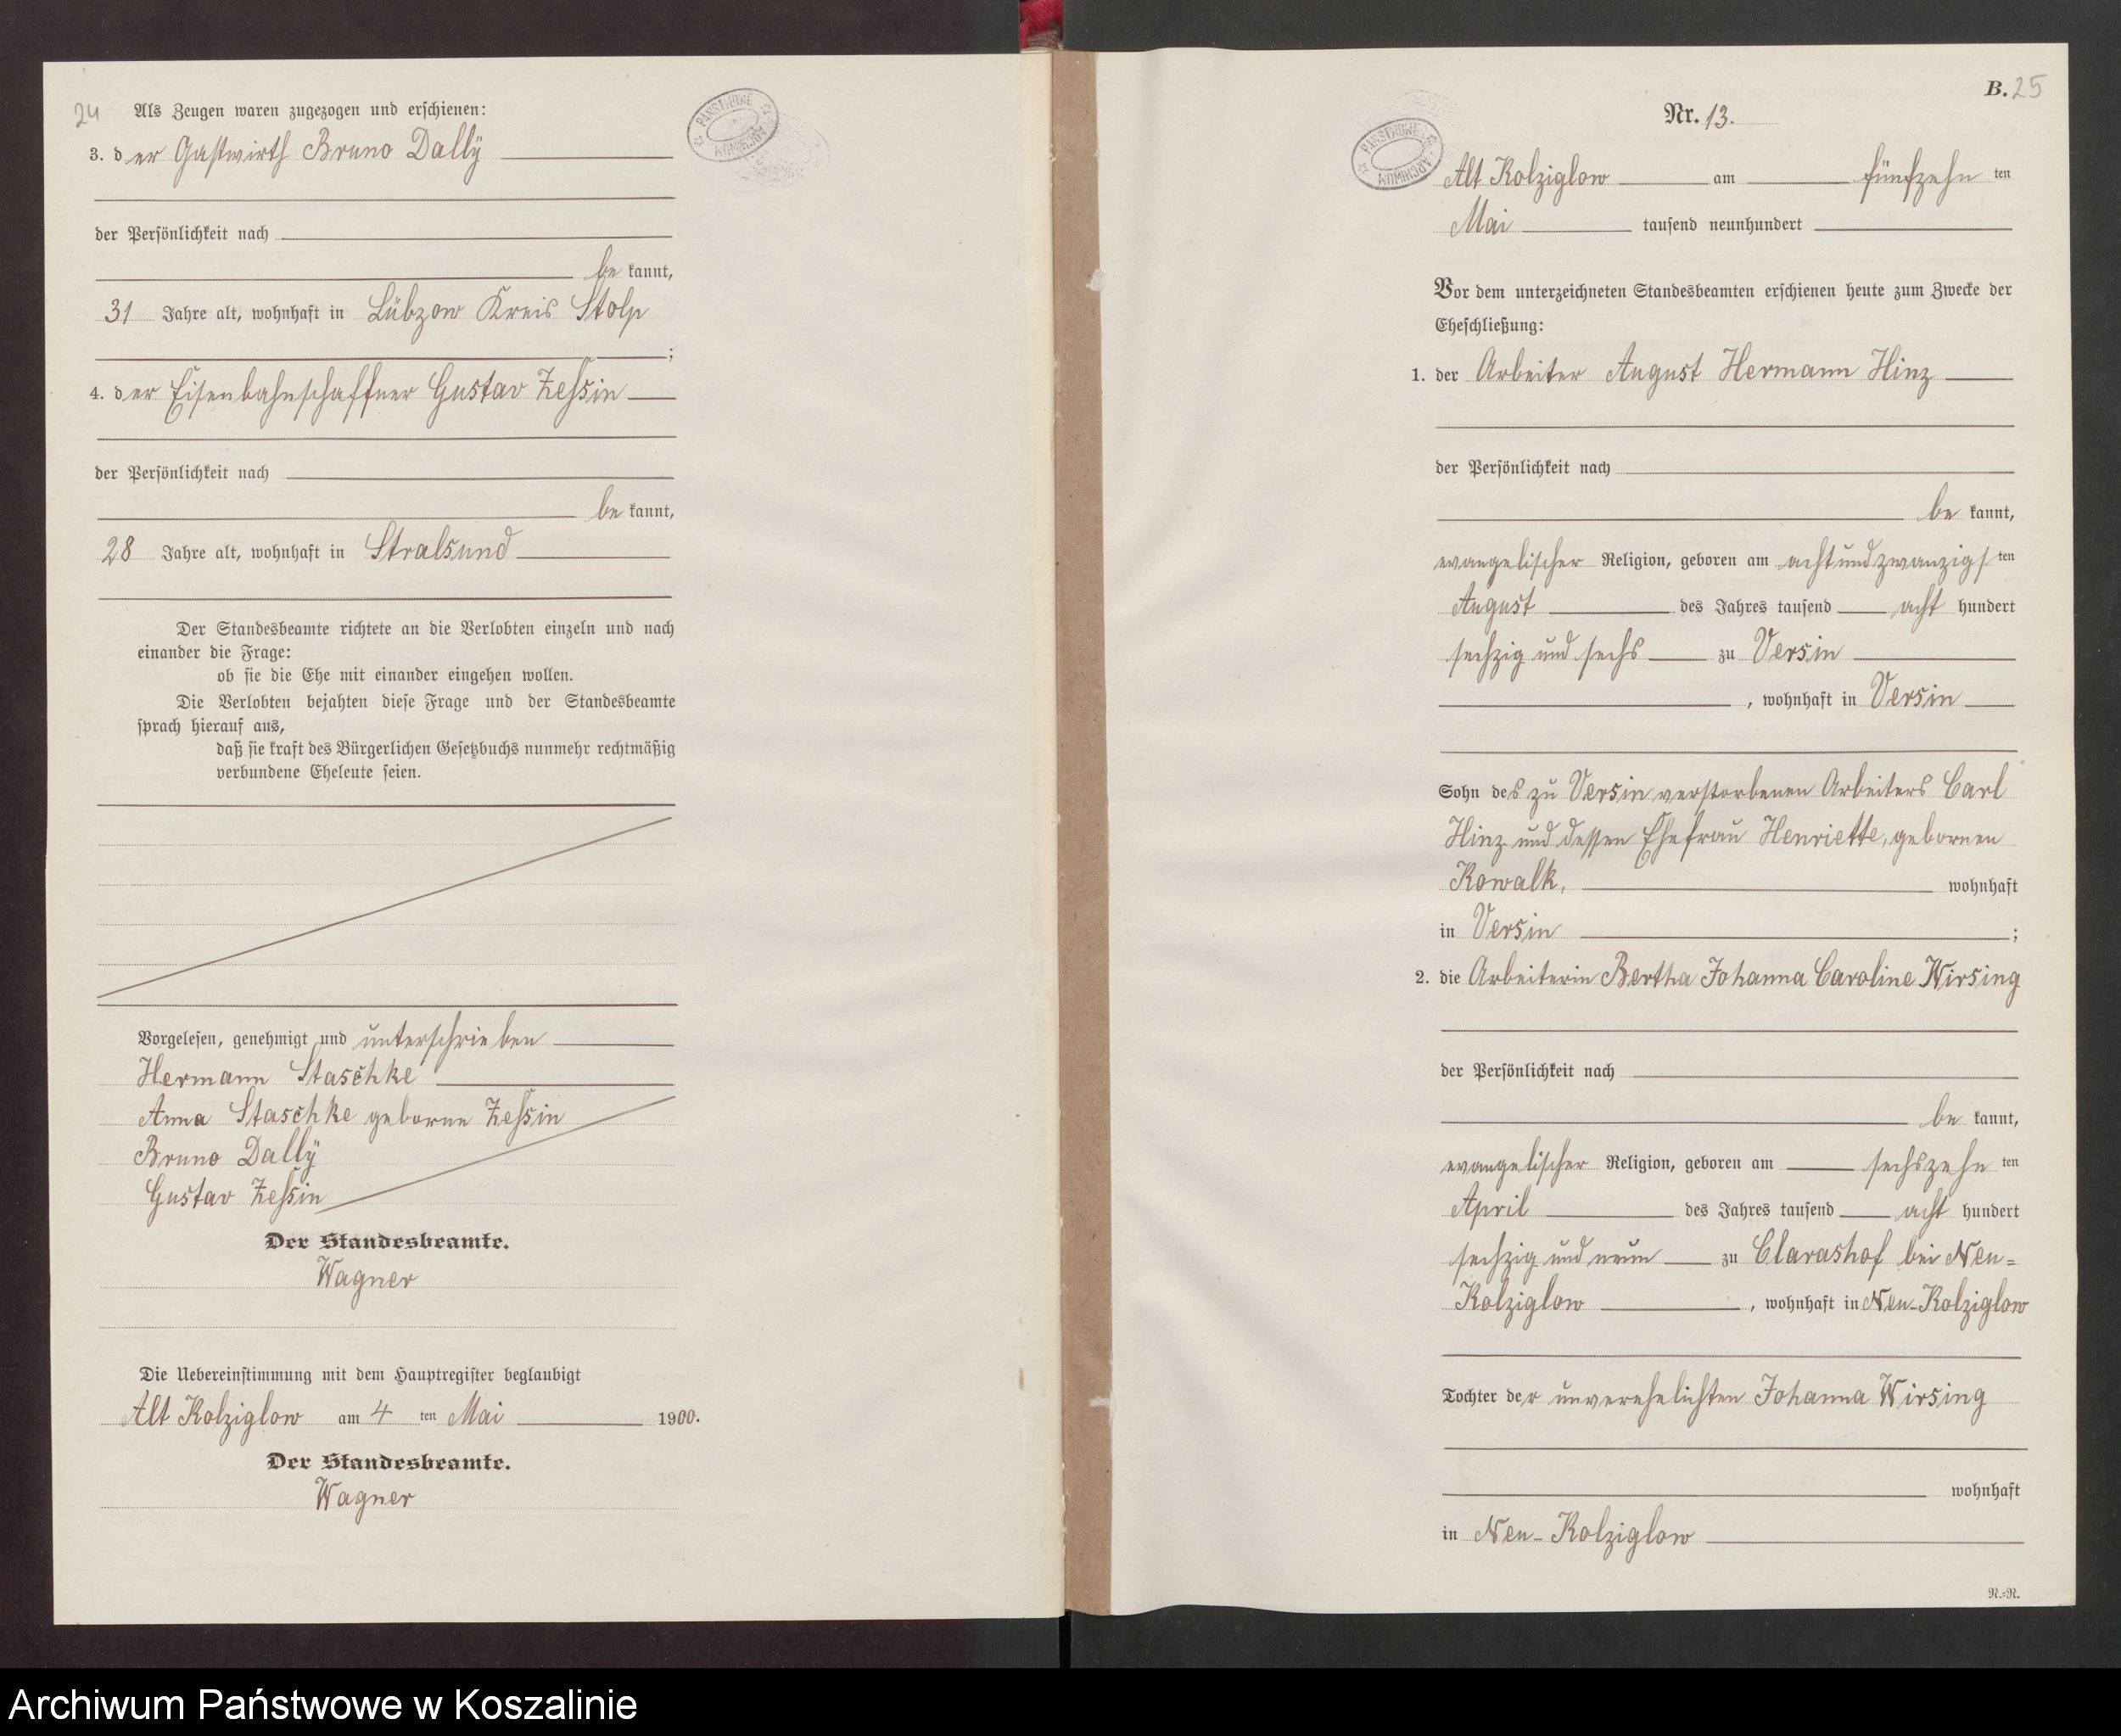 24
Als Zeugen waren zugezogen und erschienen:
3. der Gastwirth Bruno Dallÿ
der Persönlichkeit nach
be kannt,
31 Jahre alt, wohnhaft in Lübzow Kreis Stolp
;
4. der Eisenbahnschaffner Gustav Zessin
der Persönlichkeit nach
be kannt,
28 Jahre alt, wohnhaft in Stralsund
Der Standesbeamte richtete an die Verlobten einzeln und nach
einander die Frage:
ob sie die Ehe mit einander eingehen wollen.
Die Verlobten bejahten diese Frage und der Standesbeamte
sprach hierauf aus,
daß sie kraft des Bürgerlichen Gesetzbuchs nunmehr rechtmäßig
verbundene Eheleute seien.
Vorgelesen, genehmigt und unterschrieben
Hermann Staschke
Anna Staschke geborne Zessin
Bruno Dallÿ
Gustav Zessin
Der Standesbeamte.
Wagner
Die Uebereinstimmung mit dem Hauptregister beglaubigt
Alt Kolziglow am 4 ten Mai 1900.
Der Standesbeamte.
Wagner
PANSTWOWE ARCHIWUM
B. 25
Nr. 13.
PANSTWOWE ARCHIWUM
Alt Kolziglow am fünfzehn ten
Mai tausend neunhundert
Vor dem unterzeichneten Standesbeamten erschienen heute zum Zwecke der
Eheschließung:
1. der Arbeiter August Hermann Hinz
der Persönlichkeit nach
be kannt,
evangelischer Religion, geboren am achtundzwanzigsten
August des Jahres tausend acht hundert
sechzig und sechs zu Versin
, wohnhaft in Versin
Sohn des zu Versin verstorbenen Arbeiters Carl
Hinz und dessen Ehefrau Henriette, gebornen
Kowalk, wohnhaft
in Versin ;
2. die Arbeiterin Bertha Johanna Caroline Wirsing
der Persönlichkeit nach
be kannt,
evangelischer Religion, geboren am sechszehn ten
April des Jahres tausend acht hundert
sechzig und neun zu Clarashof bei Neu=
Kolziglow , wohnhaft in Neu-Kolziglow
Tochter der unverehelichten Johanna Wirsing
wohnhaft
in Neu-Kolziglow
N.=N.
Archiwum Państwowe w Koszalinie